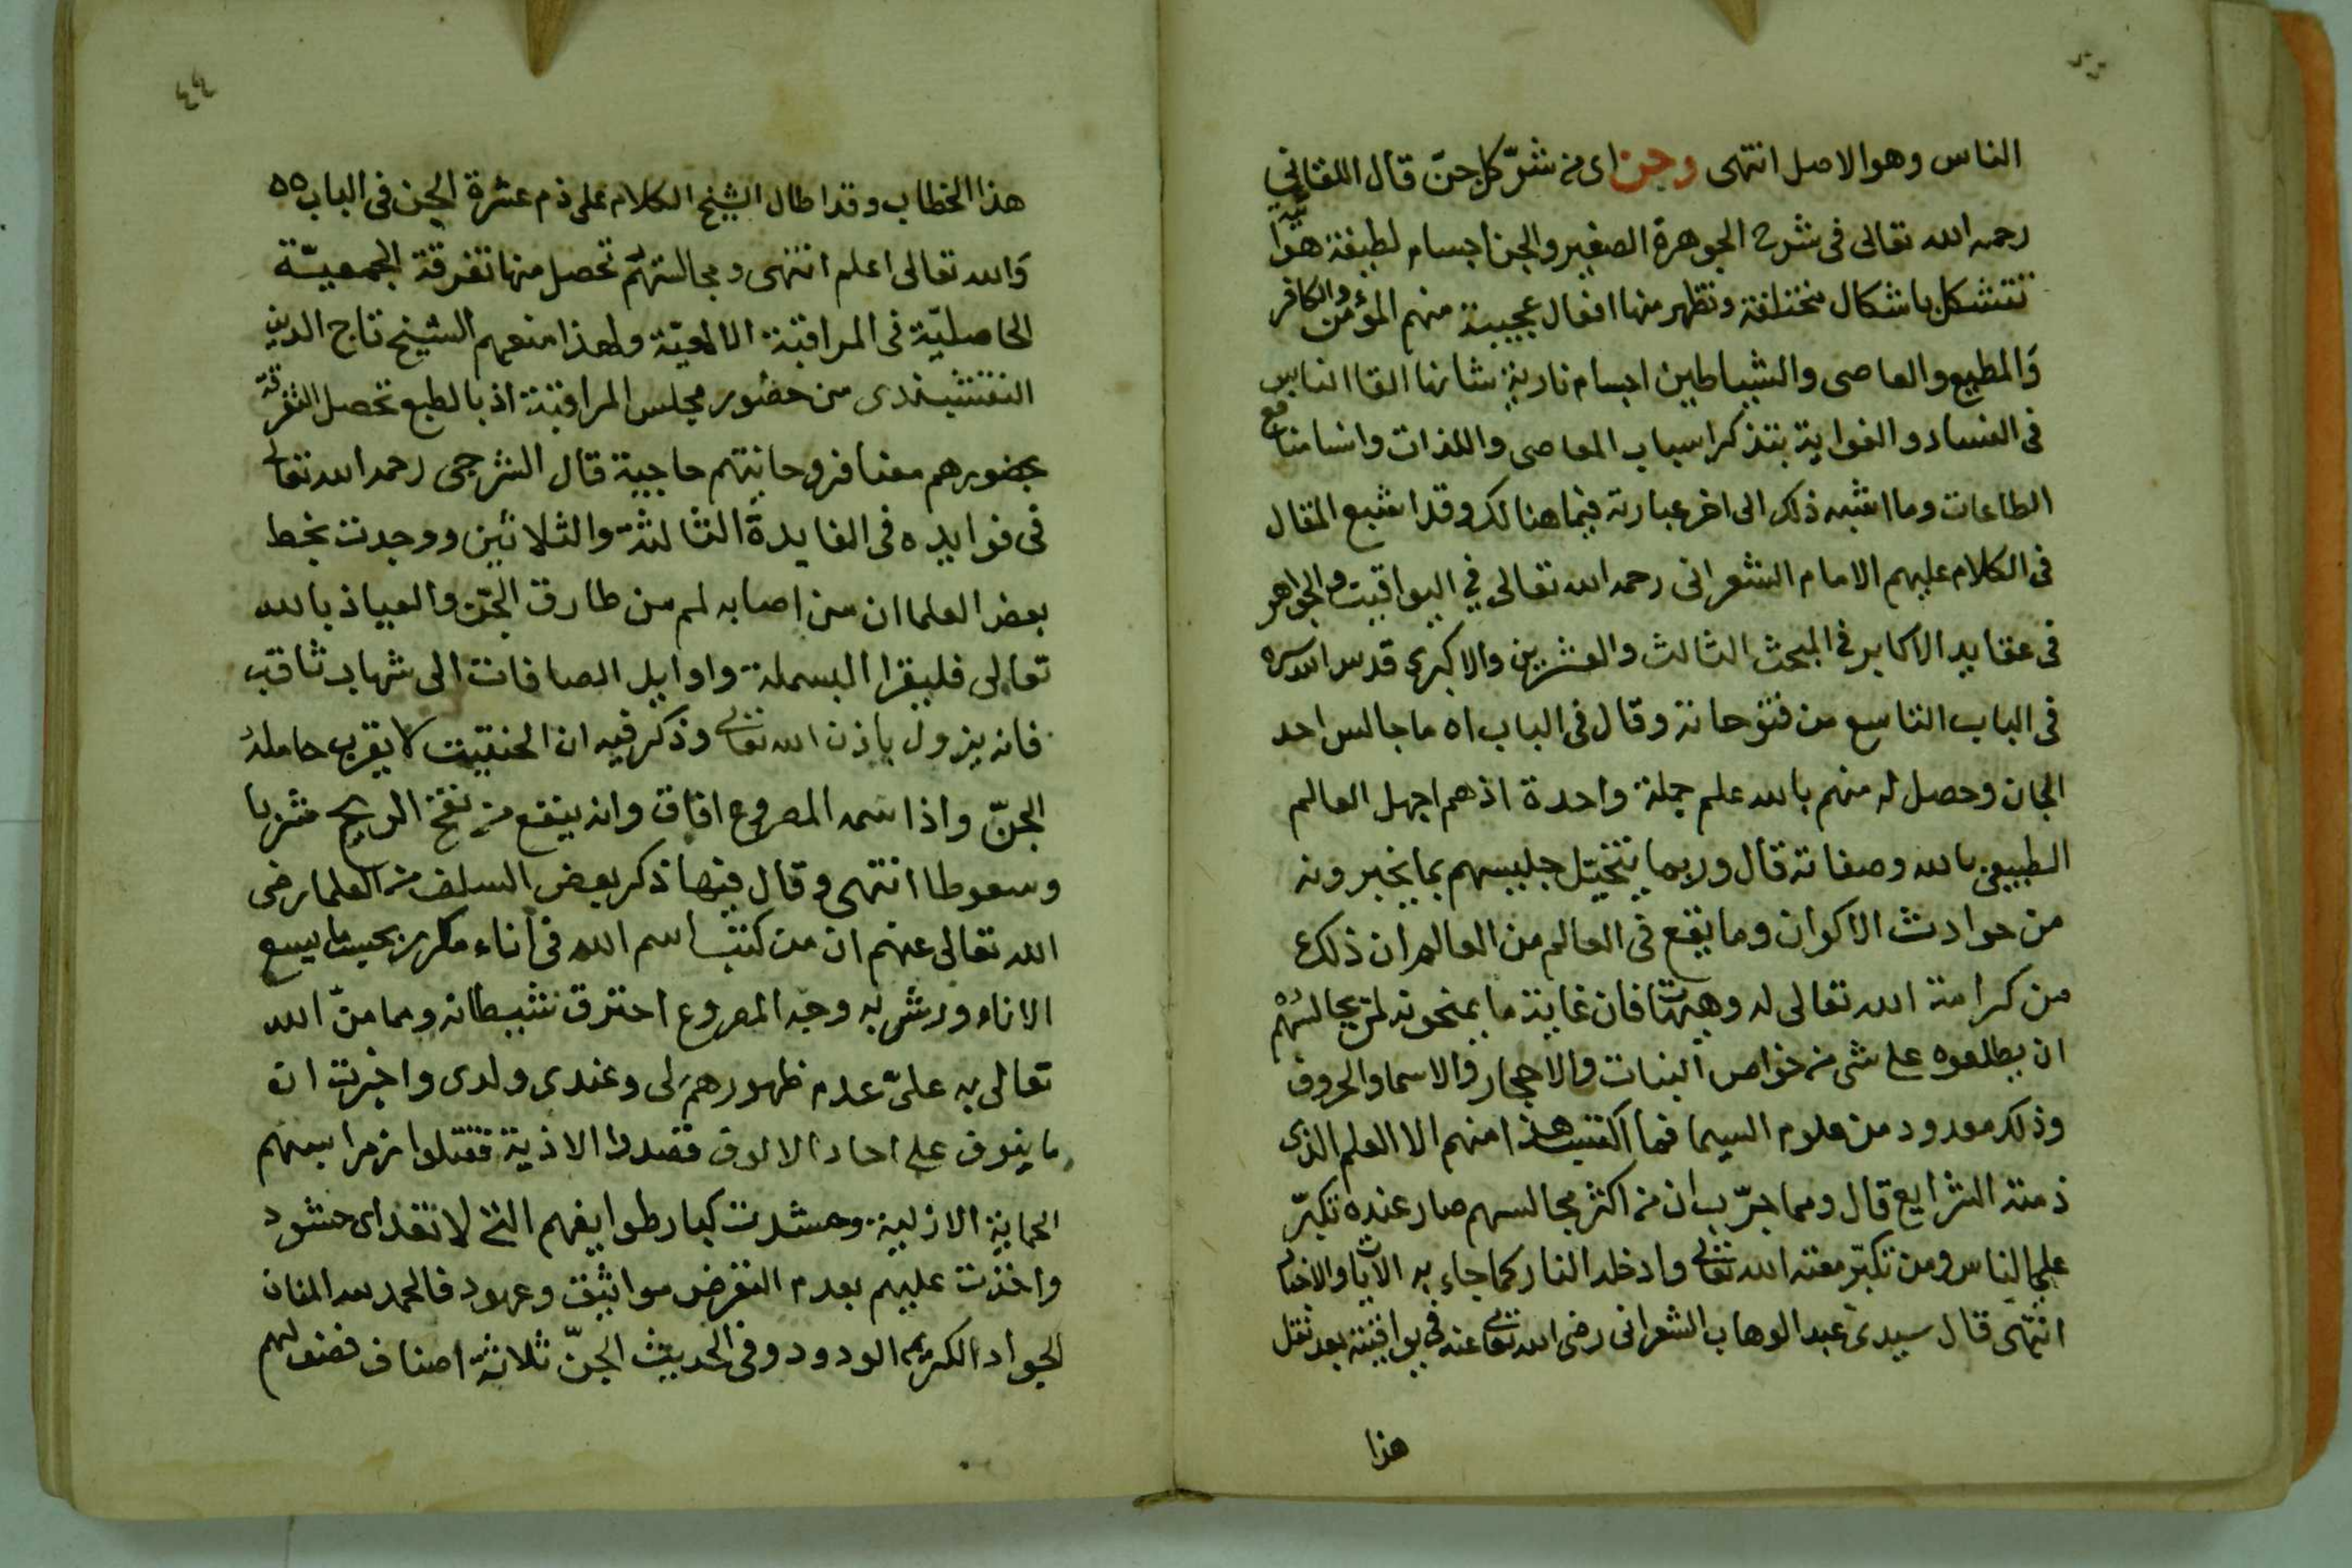 الناس وهو الاصل انتهى وجن اى من شرّ كل جنّ قال اللقاني
رحمه الله تعالى فى شرح الجوهرة الصغير والجن اجسام لطيفة هوائية
تتشكل باشكال مختلفة وتظهر منها افعال عجيبة منهم المؤمن والكافر
وَالمطيع والعاصى والشياطين اجسام نارية شانها القا الناس
فى الفساد والغواية بتذكر اسباب المعاصى واللذات وانسا منافع
الطاعات وما اشبه ذلك الى اخر عبارته فيما هنالك وقد اشبع المقال
فى الكلام عليهم الامام الشعرانى رحمه الله تعالى في اليواقيت والجواهر
فى عقايد الاكابر في المبحث الثالث والعشرين والاكبرى قدس الله سره
فى الباب التاسع من فتوحاته وقال فى الباب ٥١ ما جالس احد
الجان وحصل له منهم بالله علم جملة واحدة اذ هم اجهل العالم
الطبيعى بالله وصفاته قال وربما يتخيّل جليسهم بما يخبرونه
من حوادث الاكوان وما يقع فى العالم من العالم ان ذلك
من كرامة الله تعالى له وهيهات فان غاية ما يمنحونه لمن يجالسهم
ان يطلعوه على شى من خواص النبات والاحجار والاسما والحروف
وذلك معدود من علوم السيما فما اكتسب هذا منهم الا العلم الذى
ذمته الشرايع قال ومما جرّب ان من اكثر مجالسهم صار عنده تكبّر
على الناس ومن تكبّر مقته الله تعالى وادخله النار كما جاء به الايات والاخبار
انتهى قال سيدى عبد الوهاب الشعرانى رضى الله تعالى عنه فى يواقيته بعد نقل
هذا
٤٤
هذا الخطاب وقد اطال الشيخ الكلام على ذم عشرة الجن فى الباب ٥٥
وَالله تعالى اعلم انتهى ومجالستهم تحصل منها تفرقة الجمعيّة
الحاصليّة فى المراقبة الالهيّة ولهذا منعهم الشيخ تاج الدين
النقشبندى من حضور مجلس المراقبة اذ بالطبع تحصل التفرقة
بحضورهم معنا فروحانيتهم حاجبة قال الشرجى رحمه الله تعالى
فى فوايده فى الفايدة الثالثة والثلاثين ووجدت بخط
بعض العلما ان من اصابه لمم من طارق الجنّ والعياذ بالله
تعالى فليقرا البسملة واوايل الصافات الى شهاب ثاقب
فانه يزول باذن الله تعالى وذكر فيه ان الحنتيت لا يقرب حامله
الجنّ واذا شمه المصروع افاق وانه ينفع من نفخ الريح شربا
وسعوطا انتهى وقال فيها ذكر بعض السلف من العلما رضى
الله تعالى عنهم ان من كتب اسم الله فى اناء مكررا بحيث ما يسع
الاناء ورش به وجه المصروع احترق شيطانه ومما منّ الله
تعالى به علىّ عدم ظهورهم لى وعندى ولدى واخبرت ان
ما ينوف على احاد الالوف قصدوا الاذية فقتلوا من مراسهم
الحماية الازلية وحشدت كبار طوايفهم التى لا تعد اى حشود
واخذت عليهم بعدم التعرض مواثيق وعهود فالحمد لله المنان
الجواد الكريم الودود وفى الحديث الجنّ ثلاثة اصناف فصنف لهم